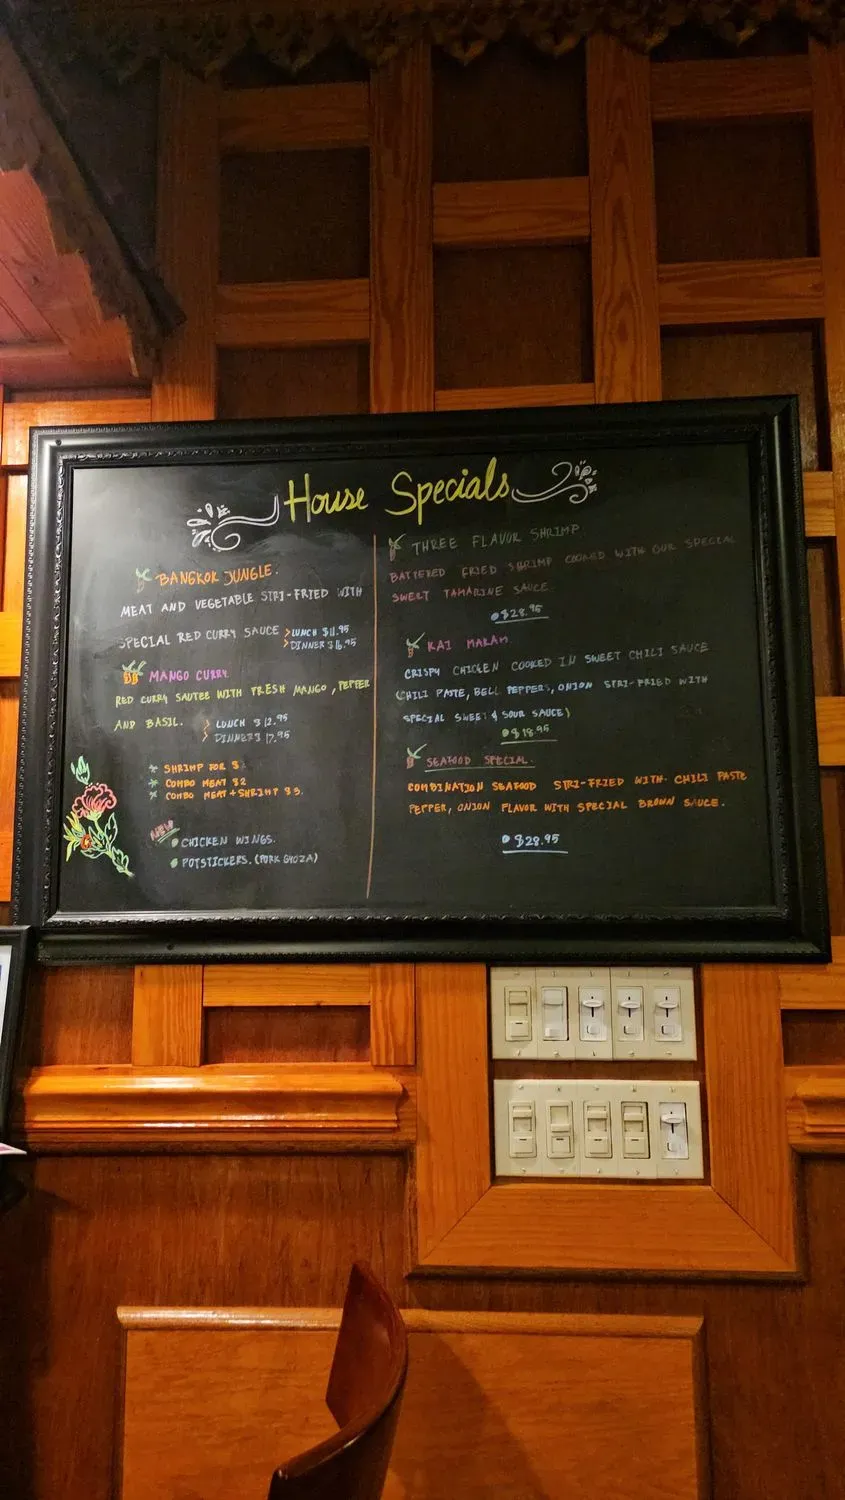 House Specials
BANGKOK JUNGLE.
MEAT AND VEGETABLE STRI-FRIED WITH
SPECIAL RED CURRY SAUCE > LUNCH $11.95
> DINNER $16.95
MANGO CURRY.
RED CURRY SAUTEE WITH FRESH MANGO, PEPPER
AND BASIL. > LUNCH $12.95
> DINNER $17.95
* SHRIMP FOR $
* COMBO MEAT $2
* COMBO MEAT + SHRIMP $3.
NEW
CHICKEN WINGS.
POTSTICKERS. (PORK GYOZA)
THREE FLAVOR SHRIMP.
BATTERED FRIED SHRIMP COOKED WITH OUR SPECIAL
SWEET TAMARINE SAUCE
$28.95
KAI MAKAM
CRISPY CHICKEN COOKED IN SWEET CHILI SAUCE
(CHILI PASTE, BELL PEPPERS, ONION STRI-FRIED WITH
SPECIAL SWEET & SOUR SAUCE)
$18.95
SEAFOOD SPECIAL.
COMBINATION SEAFOOD STRI-FRIED WITH CHILI PASTE
PEPPER, ONION FLAVOR WITH SPECIAL BROWN SAUCE.
$28.95